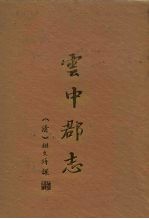 雲中郡志
（清）胡文烨撰